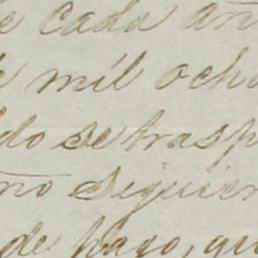 de cada añ
de mil ocho
do se trasp
ño siguien
de pago, qu